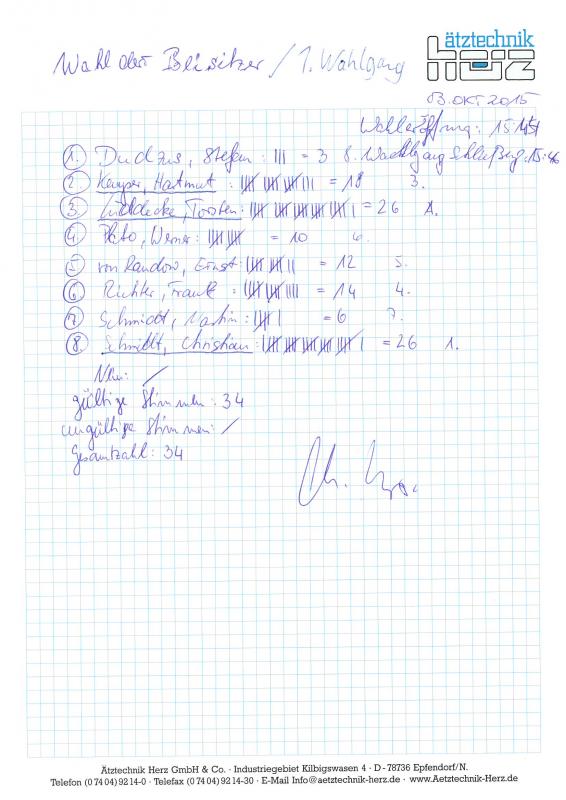 ätztechnik
herz
Wahl der Beisitzer / 1. Wahlgang
03. OKT 2015
Wahleröffnung: 15:45
1. Dudzus, Stefan: ||| = 3 8. Wahlgang Schließung: 15:46
2. Kemper, Hartmut: = 18 3.
3. Lüddecke, Torsten: = 26 1.
4. Plato, Werner: = 10 6.
5. von Randow, Ernst: = 12 5.
6. Richter, Frank: = 14 4.
7. Schmidt, Martin: = 6 7.
8. Schmidt, Christian: = 26 1.
Nein: /
gültige Stimmen: 34
ungültige Stimmen: /
Gesamtzahl: 34
Ätztechnik Herz GmbH & Co. · Industriegebiet Kilbigswasen 4 · D - 78736 Epfendorf/N.
Telefon (0 74 04) 92 14-0 · Telefax (0 74 04) 92 14-30 · E-Mail Info@aetztechnik-herz.de · www.Aetztechnik-Herz.de